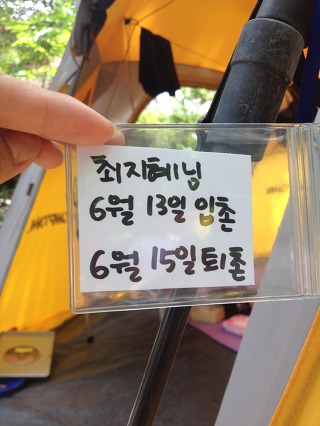 최지혜님
6월 13일 입촌
6월 15일 퇴촌